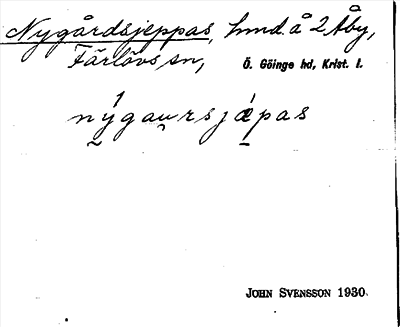 Nygårdsjeppas, hmd å 2 Åby,
Färlövs sn, Ö. Göinge hd, Krist. l.
nýgau̯rsjǽpas
JOHN SVENSSON 1930.